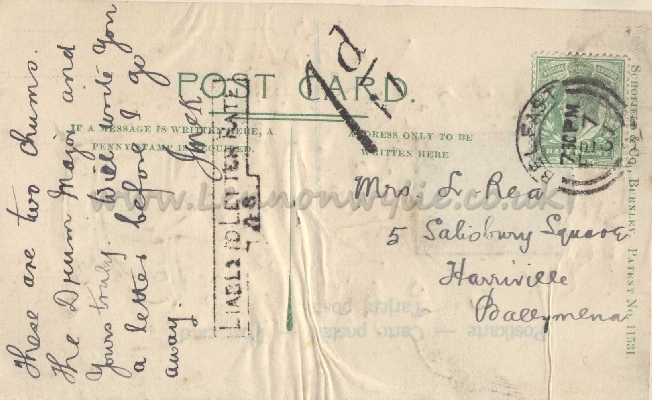 POST CARD.
IF A MESSAGE IS WRITTEN HERE, A
PENNY STAMP IS REQUIRED.
ADDRESS ONLY TO BE
WRITTEN HERE
These are two chums.
The Drum Major and
Yours truly. Will write you
a letter before I go
away. Jack
LIABLE TO LETTER RATE
1d
BELFAST
7.30 PM
Mrs L. Rea
5 Salisbury Square
Harriville
Ballymena
PATENT No. 11531
BURNLEY,
Postkarte — Carte postale
www.Lennonwylie.co.uk